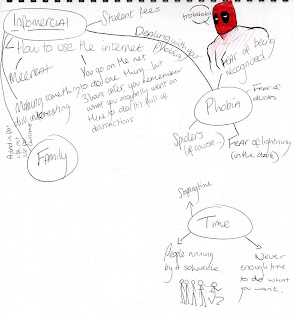 Infomercial
Student fees
How to use the internet
Dealing with your
phobia
trololololol
Fear of being
recognised
Meerkat
Making something
dull interesting
You go on the net
to do one thing, but
3 hours later you remember
what you originally went on
there to do. It's full of
distractions
Phobia
Fear of
doctors
Spiders
(of course...)
Fear of lightning
(in the dark)
Family
Stopping time
Time
People running
by a schedule
Never
enough time
to do what you
want.